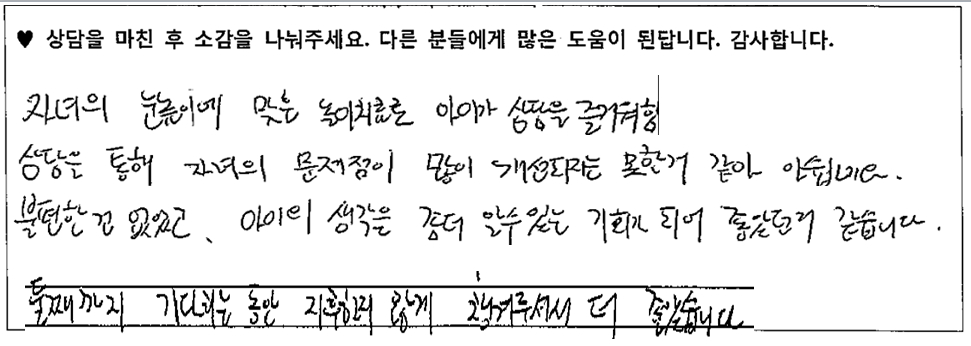 ♥ 상담을 마친 후 소감을 나눠주세요. 다른 분들에게 많은 도움이 된답니다. 감사합니다.
자녀의 눈높이에 맞는 놀이치료로 아이가 상담을 즐거워함
상담을 통해 자녀의 문제점이 많이 개선되지는 못한거 같아 아쉽네요.
불편한 건 없었고, 아이의 생각을 좀더 알수있는 기회가 되어 좋았던거 같습니다.
둘째까지 기다리는 동안 지루하지 않게 챙겨주셔서 더 좋았습니다